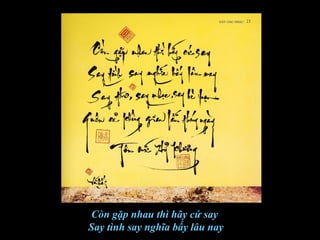 Còn gặp nhau thì hãy cứ say
Say tình say nghĩa bấy lâu nay
Say thơ, say nhạc, say bè bạn
Quên cả không gian lẫn tháng ngày
Tôn Nữ Hỷ Khương
Còn gặp nhau thì hãy cứ say
Say tình say nghĩa bấy lâu nay